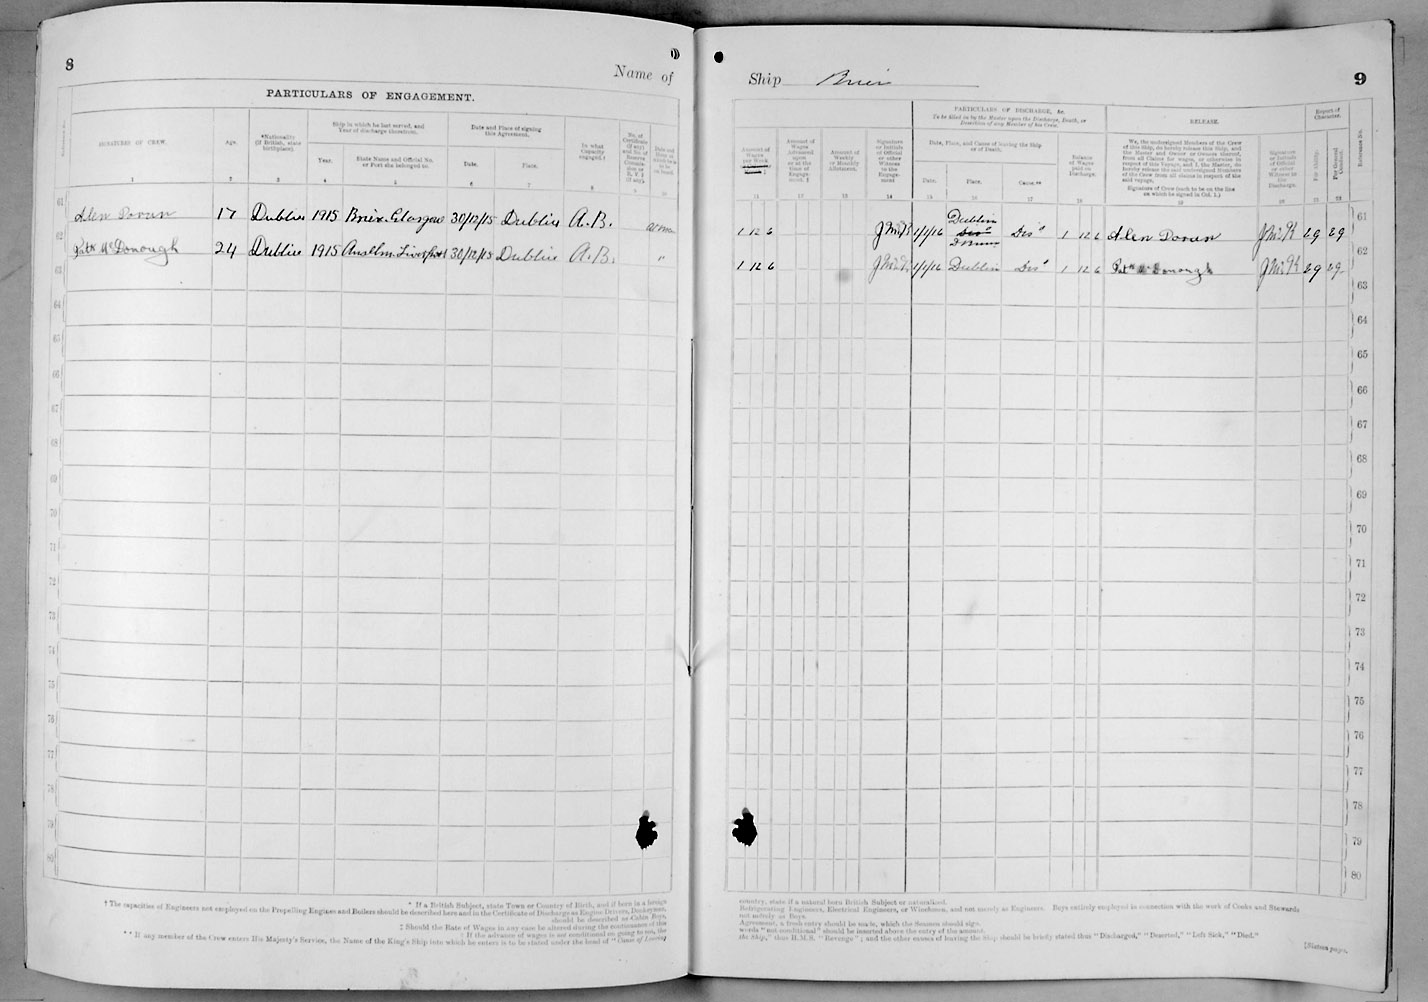 8
Name of
PARTICULARS OF ENGAGEMENT.
SIGNATURES OF CREW.
Age.
*Nationality (if British, state birthplace).
Ship in which he last served, and Year of discharge therefrom.
Year.
State Name and Official No. or Port she belonged to.
Date and Place of signing this Agreement.
Date.
Place.
In what Capacity engaged.†
1 2 3 4 5 6 7 8 9 10
61 Alen Doran 17 Dublin 1915 Brier Glasgow 30/12/15 Dublin A.B.
62 Patk McDonough 24 Dublin 1915 Anselm Liverpool 30/12/15 Dublin A.B. "
63
64
65
66
67
68
69
70
71
72
73
74
75
76
77
78
79
80
* If a British Subject, state Town or Country of Birth, and if born in a foreign
† The capacities of Engineers not employed on the Propelling Engines and Boilers should be described here and in the Certificate of Discharge as Engine Drivers, Donkeymen,
should be described as Cabin Boys,
‡ Should the Rate of Wages in any case be altered during the continuance of this
‖ If the advance of wages is not conditional on going to sea, the
** If any member of the Crew enters His Majesty's Service, the Name of the King's Ship into which he enters is to be stated under the head of "Cause of Leaving
Ship Brier
9
PARTICULARS OF DISCHARGE, &c.
To be filled in by the Master upon the Discharge, Death, or Desertion of any Member of his Crew.
RELEASE.
Report of Character.
Reference No.
Amount of Wages per Week
Amount of Wages Advanced upon or at the time of Engagement.
Amount of Weekly or Monthly Allotment.
Signature or Initials of Official or other Witness to the Engagement
Date, Place, and Cause of leaving the Ship or of Death.
Date.
Place.
Cause.**
Balance of Wages paid on Discharge.
We, the undersigned Members of the Crew of this Ship, do hereby release this Ship, and the Master and Owner or Owners thereof, from all Claims for wages, or otherwise in respect of this Voyage, and I, the Master, do hereby release the said undersigned Members of the Crew from all claims in respect of the said voyage.
Signature of Crew (each to be on the line on which he signed in Col. 1.)
Signature or Initials of Official or other Witness to the Discharge.
For Ability.
For General Conduct.
11 12 13 14 15 16 17 18 19 20 21 22
1 12 6 1/1/16 Dublin Disd 1 12 6 Alen Doran 61
1 12 6 1/1/16 Dublin Disd 1 12 6 Patk McDonough 62
63
64
65
66
67
68
69
70
71
72
73
74
75
76
77
78
79
80
country, state if a natural born British Subject or naturalized.
Refrigerating Engineers, Electrical Engineers, or Winchmen, and not merely as Engineers. Boys entirely employed in connection with the work of Cooks and Stewards
not merely as Boys.
Agreement, a fresh entry should be made, which the Seamen should sign.
words "not conditional" should be inserted above the entry of the amount.
the Ship," thus H.M.S. "Revenge"; and the other causes of leaving the Ship should be briefly stated thus "Discharged," "Deserted," "Left Sick," "Died."
[Sixteen pages.